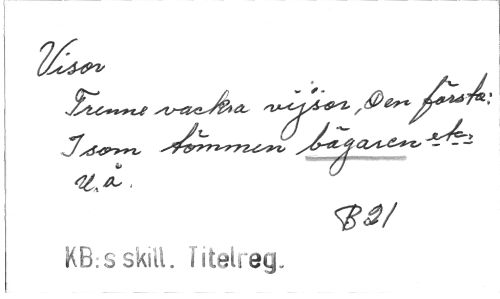 Visor
Trenne vackra vijsor, Den första:
I som tömmen bägaren etc.
U.å.
B 21
KB:s skill. Titelreg.